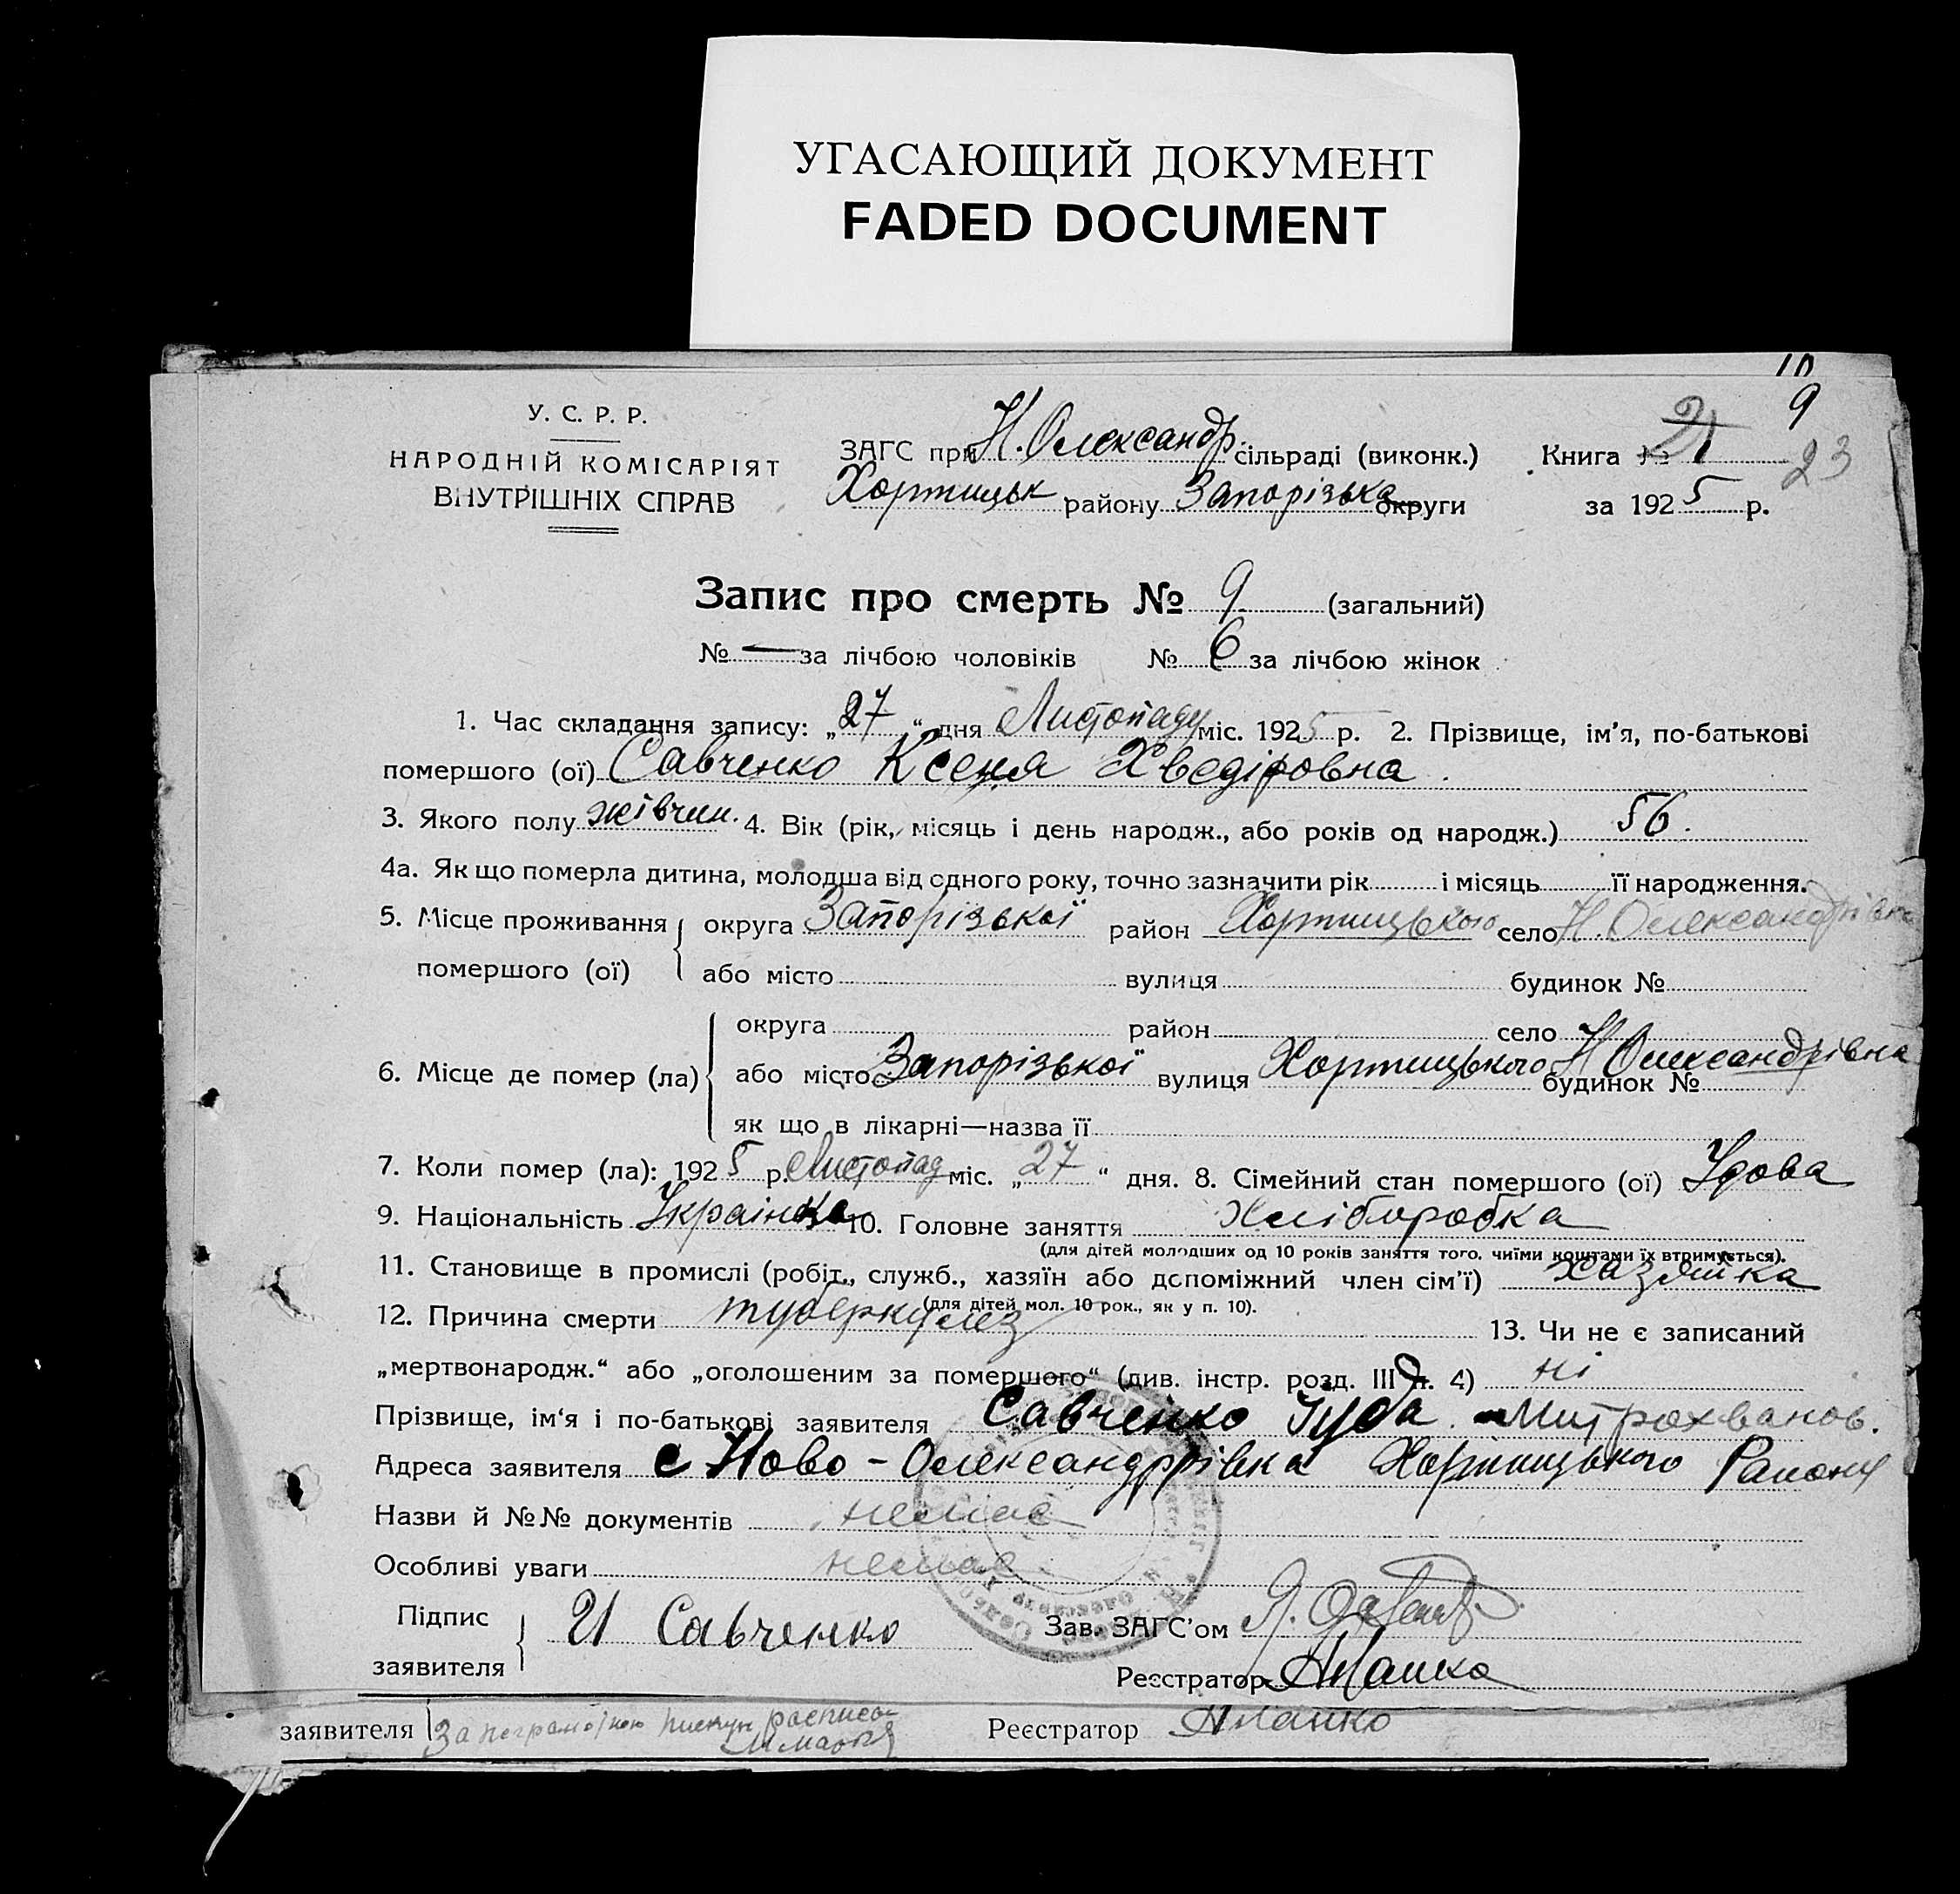 УГАСАЮЩИЙ ДОКУМЕНТ
FADED DOCUMENT
10
9
У. С. Р. Р.
НАРОДНІЙ КОМІСАРІЯТ
ВНУТРІШНІХ СПРАВ
ЗАГС при Н. Олександр. сільраді (виконк.)
Хортицьк району Запорізька округи
Книга № 21 23
за 1925 р.
Запис про смерть № 9 (загальний)
№ — за лічбою чоловіків № 6 за лічбою жінок
1. Час складання запису: „27“ дня Листопаду міс. 1925 р. 2. Прізвище, ім'я, по-батькові
помершого (ої) Савченко Ксеня Хведіровна.
3. Якого полу жівчин. 4. Вік (рік, місяць і день народж., або років од народж.) 56.
4а. Як що померла дитина, молодша від одного року, точно зазначити рік і місяць її народження.
5. Місце проживання округа Запорізької район Хортицького село Н. Олександрівка
помершого (ої) або місто вулиця будинок №
округа район село Н Олександрівка
6. Місце де помер (ла) або місто Запорізької вулиця Хортицького будинок №
як що в лікарні—назва її
7. Коли помер (ла): 1925 р. Листопад міс. „27“ дня. 8. Сімейний стан помершого (ої) Удова
9. Національність Українка 10. Головне заняття Хліборобка
(для дітей молодших од 10 років заняття того, чиїми коштами їх втримується).
11. Становище в промислі (робіт., служб., хазяїн або допоміжний член сім'ї) хазяйка
(для дітей мол. 10 рок., як у п. 10).
12. Причина смерти туберкулез 13. Чи не є записаний
„мертвонародж.“ або „оголошеним за помершого“ (див. інстр. розд. III п. 4) ні
Прізвище, ім'я і по-батькові заявителя Савченко Іуда Митрохванов.
Адреса заявителя с Ново-Олександрівка Хортицького Району
Назви й №№ документів немає
Особливі уваги немає
Підпис
заявителя
И Савченко
Зав. ЗАГС'ом
Реєстратор
заявителя За неграмотною
Реєстратор